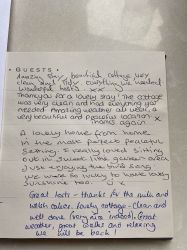 • GUESTS •
Amazing stay, beautiful cottage very
clean and tidy everything we needed
wonderful hosts. xx
Thankyou for a lovely stay! The cottage
was very clean and had everything you
needed. Amazing weather all week, a
very beautiful and peaceful location x
Thanks again
A lovely home from home
in the most perfect peaceful
setting. I really loved sitting
out in the garden area
just enjoying the birds sing.
We were lucky to have lovely
sunshine too.
Great hosts - thanks for the milk and
welsh cakes. Lovely cottage - clean and
well done (very nice indeed). Great
weather, great walks and relaxing
We will be back!